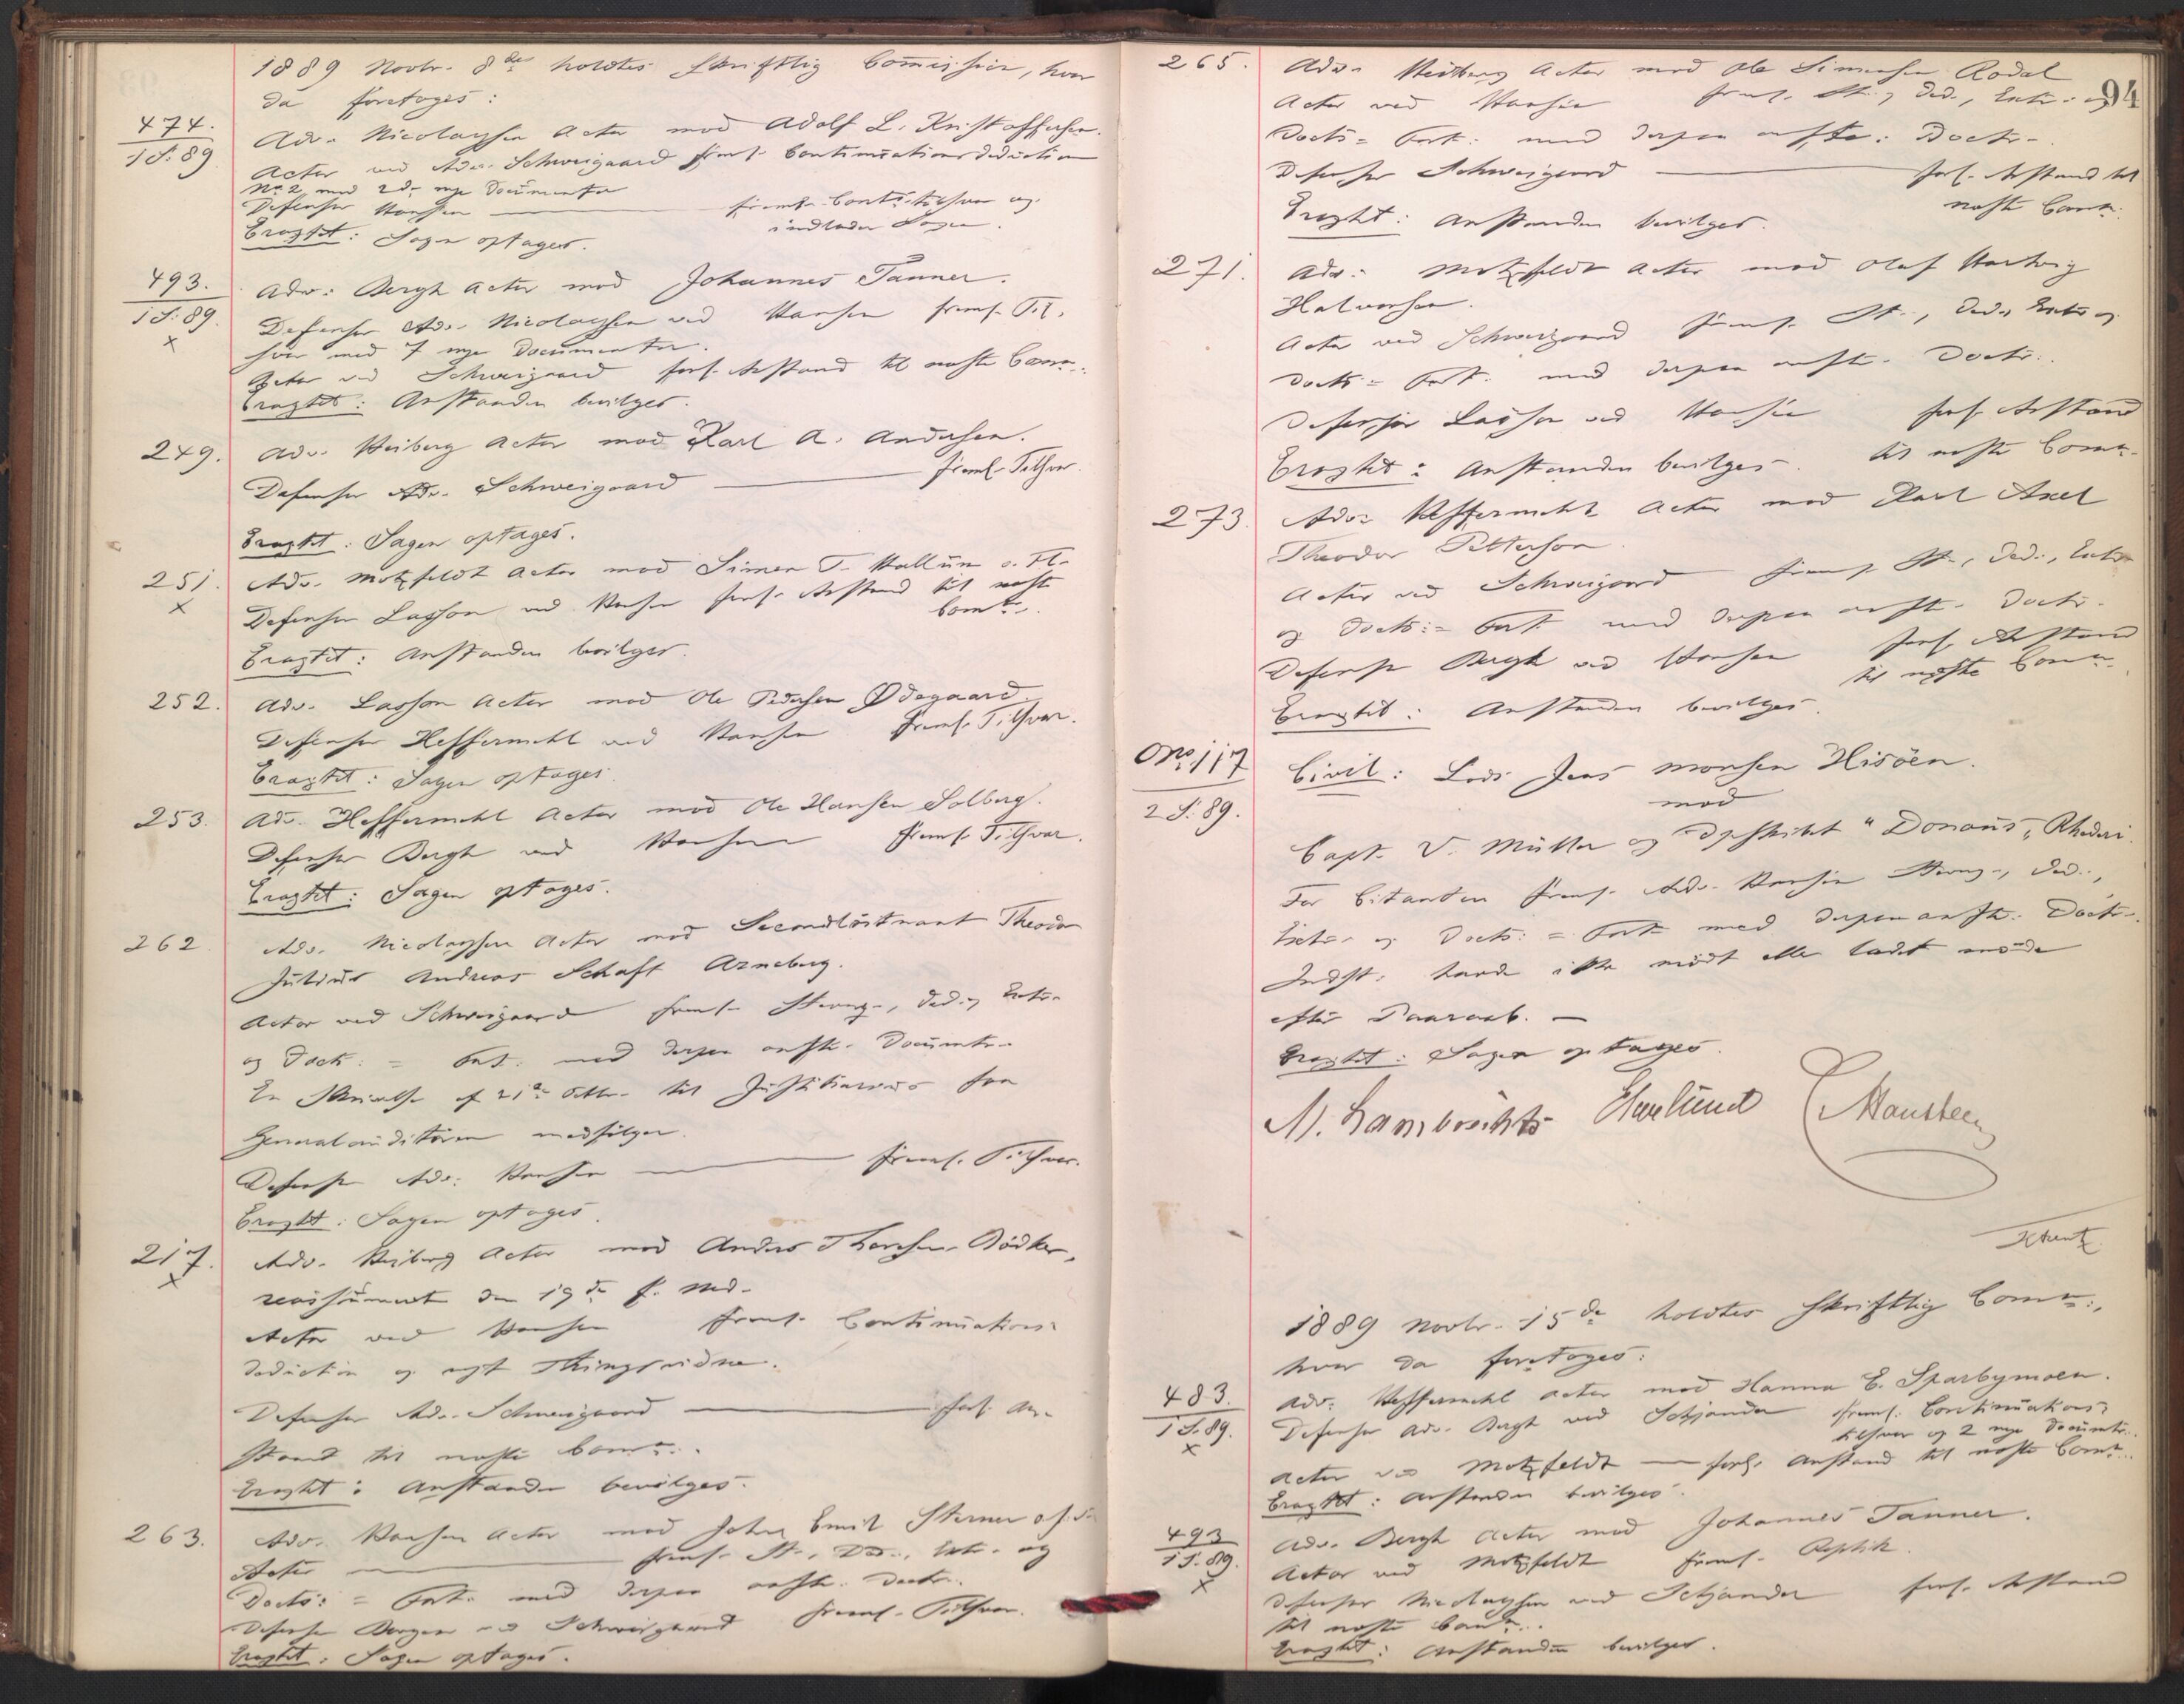 1889 Novbr. 8de holdtes skriftlig Commission, hvor
da foretoges:
474. Adv. Nicolaysen Actor mod Adolf L. Kristoffersen.
1 S. 89 Actor ved Adv. Schweigaard freml. Continuationsdeduction
No 2 med 2de nye Documenter
Defensor Hansen freml. Cont. tilsvar og
indlader Sagen.
Eragtet: Sagen optages.
493. Adv. Bergh Actor mod Johannes Tanner.
1 S. 89. Defensor Adv. Nicolaysen ved Hansen freml. Til-
x svar med 7 nye Documenter.
Actor ved Schweigaard forl. Anstand til næste Comm.
Eragtet: Anstanden bevilges.
249. Adv. Heiberg Actor mod Karl A. Andersen.
Defensor Adv. Schweigaard freml. Tilsvar.
Eragtet: Sagen optages.
251. Adv. Motzfeldt Actor mod Simen T. Hallum o. Fl.
x Defensor Lasson ved Hansen forl. Anstand til næste
Comm.
Eragtet: Anstanden bevilges.
252. Adv. Lasson Actor mod Ole Pedersen Ødegaard.
Defensor Heffermehl ved Hansen freml. Tilsvar.
Eragtet: Sagen optages.
253. Adv. Heffermehl Actor mod Ole Hansen Solberg.
Defensor Bergh ved Hansen freml. Tilsvar.
Eragtet: Sagen optages.
262. Adv. Nicolaysen Actor mod Secondløitnant Theodor
Julius Andreas Schaft Arneberg.
Actor ved Schweigaard freml. Stevng., Ded., Extr.
og Doct: = Prot. med derpaa anftr. Documtr.
En Skrivelse af 21de Octbr. til Justitiarius fra
Generalauditøren medfølger.
Defensor Adv. Hansen freml. Tilsvar.
Eragtet: Sagen optages.
217. Adv. Heiberg Actor mod Anders Thoresen Bødker,
x reassumeret den 19de f. Md.
Actor ved Hansen freml. Continuations-
deduction og nyt Thingsvidne.
Defensor Adv. Schweigaard forl. An-
stand til næste Comm.
Eragtet: Anstanden bevilges.
263. Adv. Hansen Actor mod Johan Emil Sterner
Actor freml. St., Ded., Extr. og
Docts: = Prot. med derpaa anftr. Doctr.
Defensor ved Schweigaard freml. Tilsvar.
Eragtet: Sagen optages.
94
265. Adv. Heiberg Actor mod Ole Simensen Rodal
Actor ved Hansen freml. St., Ded., Extr. og
Docts = Prot. med derpaa anftr. Doctr.
Defensor Schweigaard forl. Anstand til
næste Comm.
Eragtet: Anstanden bevilges.
271. Adv. Motzfeldt Actor mod Olaf Hartvig
Halvorsen.
Actor ved Schweigaard freml. St., Ded., Extr. og
Docts = Prot. med derpaa anftr. Doctr.
Defensor Lasson ved Hansen forl. Anstand
til næste Comm.
Eragtet: Anstanden bevilges.
273. Adv. Heffermehl Actor mod Karl Axel
Theodor Petterson.
Actor ved Schweigaard freml. St., Ded., Extr.
og Docts: = Prot. med derpaa anftr. Doctr.
Defensor Bergh ved Hansen forl. Anstand
til næste Comm.
Eragtet: Anstanden bevilges.
No 117 Civil: Lods Jens Monsen Hisöen.
2 S. 89. mod
Capt. V. Müller og Dpskibet "Donau's" Rhederi.
For Citanten freml. Adv. Hansen Stevng., Ded.,
Extr. og Docts: = Prot. med derpaa anftr. Doctr.
Indst. havde ikke mødt eller ladet møde
efter Paaraab. —
Eragtet: Sagen optages.
M. Lambrechts
1889 Novbr. 15de holdtes skriftlig Comm.,
hvor da foretoges:
483. Adv. Heffermehl Actor mod Hanna E. Sparbymoen.
1 S. 89. Defensor Adv. Bergh ved Schjander freml. Continuations-
x tilsvar og 2 nye Documtr.
Actor ved Motzfeldt — forl. Anstand til næste Comm.
Eragtet: Anstanden bevilges.
493 Adv. Bergh Actor mod Johannes Tanner.
1 S. 89. Actor ved Motzfeldt freml. Replik.
x Defensor Nicolaysen ved Schjander forl. Anstand
til næste Comm.
Eragtet: Anstanden bevilges.